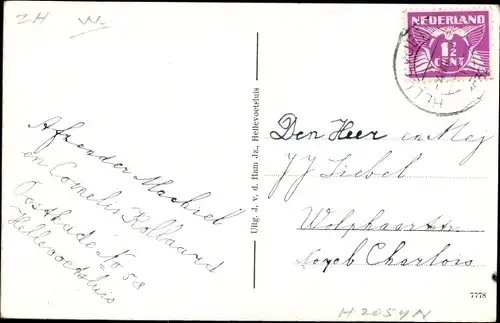 ZH W.
NEDERLAND
1½
CENT
Afzender Machiel
en Cornelis Kollaard
Oostkade No 58
Hellevoetsluis
Uitg. J. v. d. Ham Jz., Hellevoetsluis
Den Heer en Mej
JJ Siebel
Wolphaertstr
Charlois
7778
H2054N